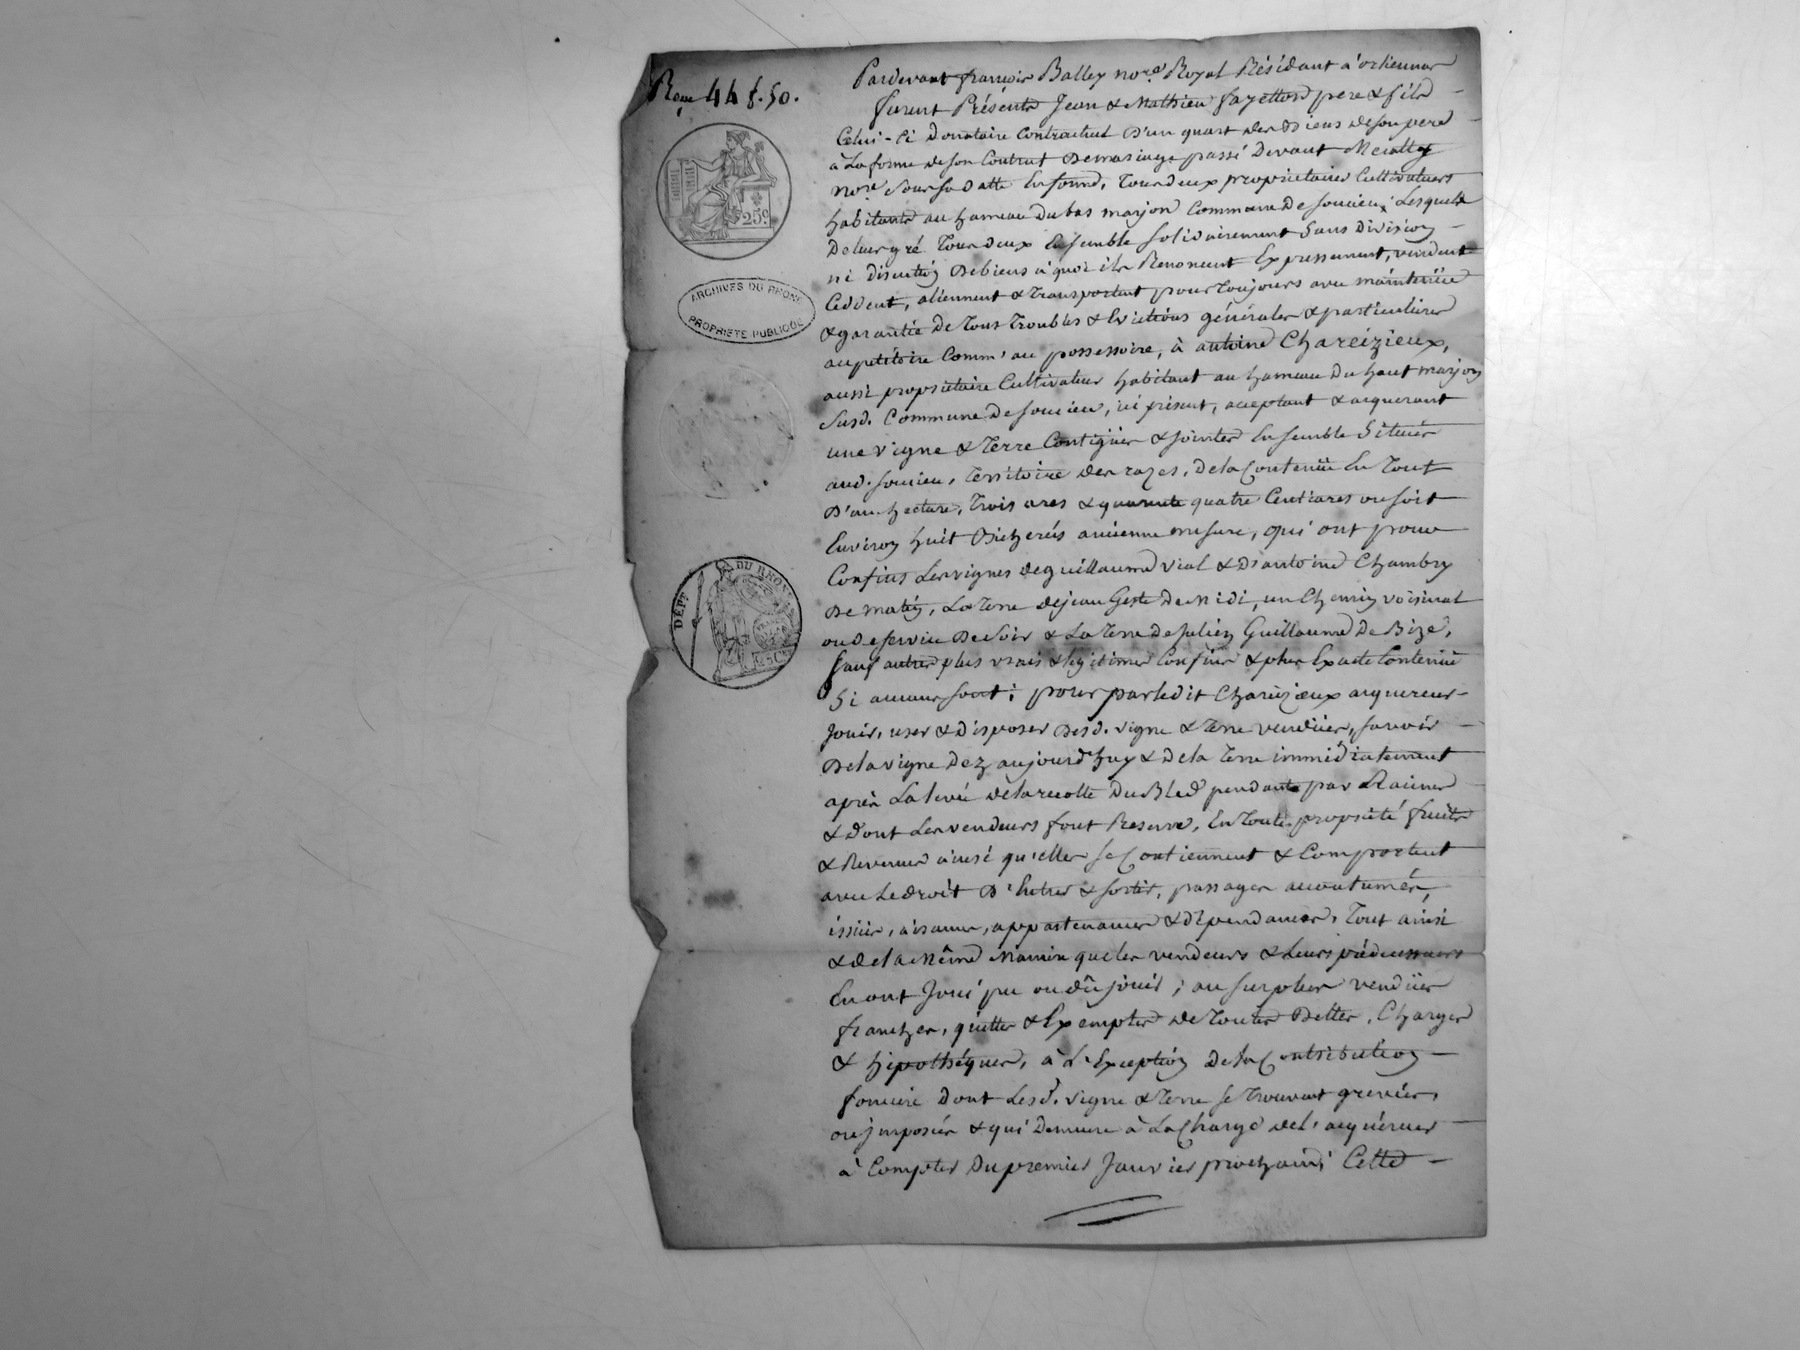 Reçu 44 f. 50.
25c
ARCHIVES DU RHONE
PROPRIETE PUBLIQUE
DÉPT DU RHONE
Pardevant françois Balley nore. Royal Résidant a orliennas
furent Présents Jean & Mathieu fayettard pere & fils
Celui-Ci Donataire Contractuel D'un quart des Biens de son pere
à La forme de son Contrat De mariage passé Devant Me
nore. Sous sa Datte En forme, Tous deux propriétaires Cultivateurs
habitants au hameau Du bas marjon Commune De soucieu; Lesquels
De leur gré Tous deux Ensemble solidairement Sans Division
ni Discution De biens à quoi ils Renoncent Expressement, vendent
Ceddent, aliennent & Transportent pour Toujours avec maintenüe
& garantie De Tous Troubles & Evictions générales & particulieres
au petitoire Comm'au possessoire, à antoine Chareizieux,
aussi propriétaire Cultivateur habitant au hameau Du haut marjon
Susd. Commune De soucieu, ici présent, acceptant & acquerant
une vigne & Terre Contigües & jointes Ensemble Situées
aud. soucieu, Territoire des razes, De la Contenüe En Tout
D'un hectare, Trois ares & quarante quatre Centiares ou soit
Environ huit Bicherés ancienne mesure, qui ont pour
Confins Les vignes de guillaume Vial & D'antoine Chambry
De matin, La Terre de jean Geste De Midi, un Chemin voisinal
ou De service De soir & La Terre De Julien Guillaume De Bize,
sauf autres plus vrais & légitimes Confins & plus Exacte Contenüe
Si aucuns sont; pour par ledit Chareizieux acquereur
Jouir, user & Disposer Desd. vigne & Terre vendües, savoir
De la vigne Dez aujourd'huy & De la Terre immédiatement
après La levée de la recolte Du Bled pendante par Racines
& Dont Les vendeurs font Reserve, En Toute propriété fruits
& Revenus ainsi qu'elles se Contiennent & Comportent
avec Le droit D'Entrer & sortir, passages accoutumés,
issües, aisances, appartenances & Dépendances, Tout ainsi
& de la Même Maniere que les vendeurs & Leurs prédécesseurs
En ont Joui pu ou dû jouir; au surplus vendües
franches, quittes & Exemptes de Toutes Dettes, Charges
& hipothéques, à L'Exception De la Contribution
fonciere Dont Lesd. vigne & Terre se Trouvent grevées,
ou jmposées & qui Demeure à La Charge de l'acquéreur
à Compter Du premier Janvier prochain; Cette